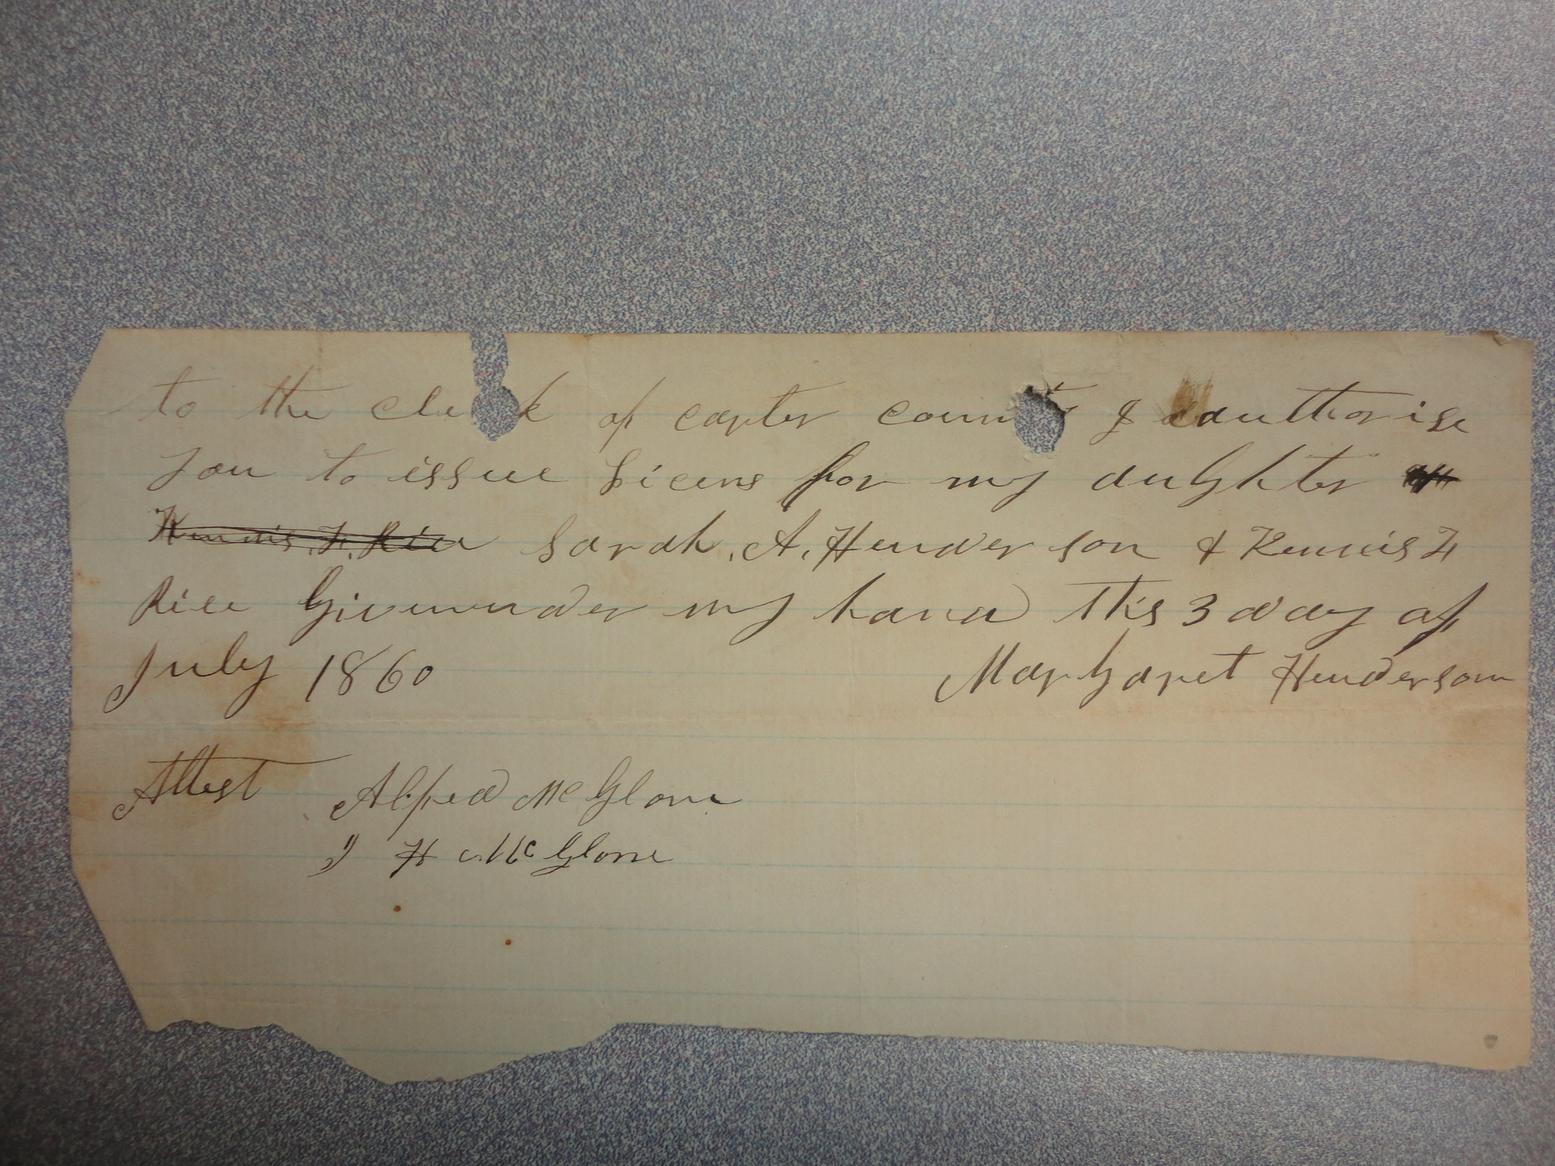 to the cleak of carter county I authorise
you to issue Licens for my dughter
Kennis. F. Rice Sarah. A. Henderson & Kennis F
Rice Givenunder my hand this 3 day of
July 1860 Marhgaret Henderson
Attest Alfred McGlone
J H McGlone